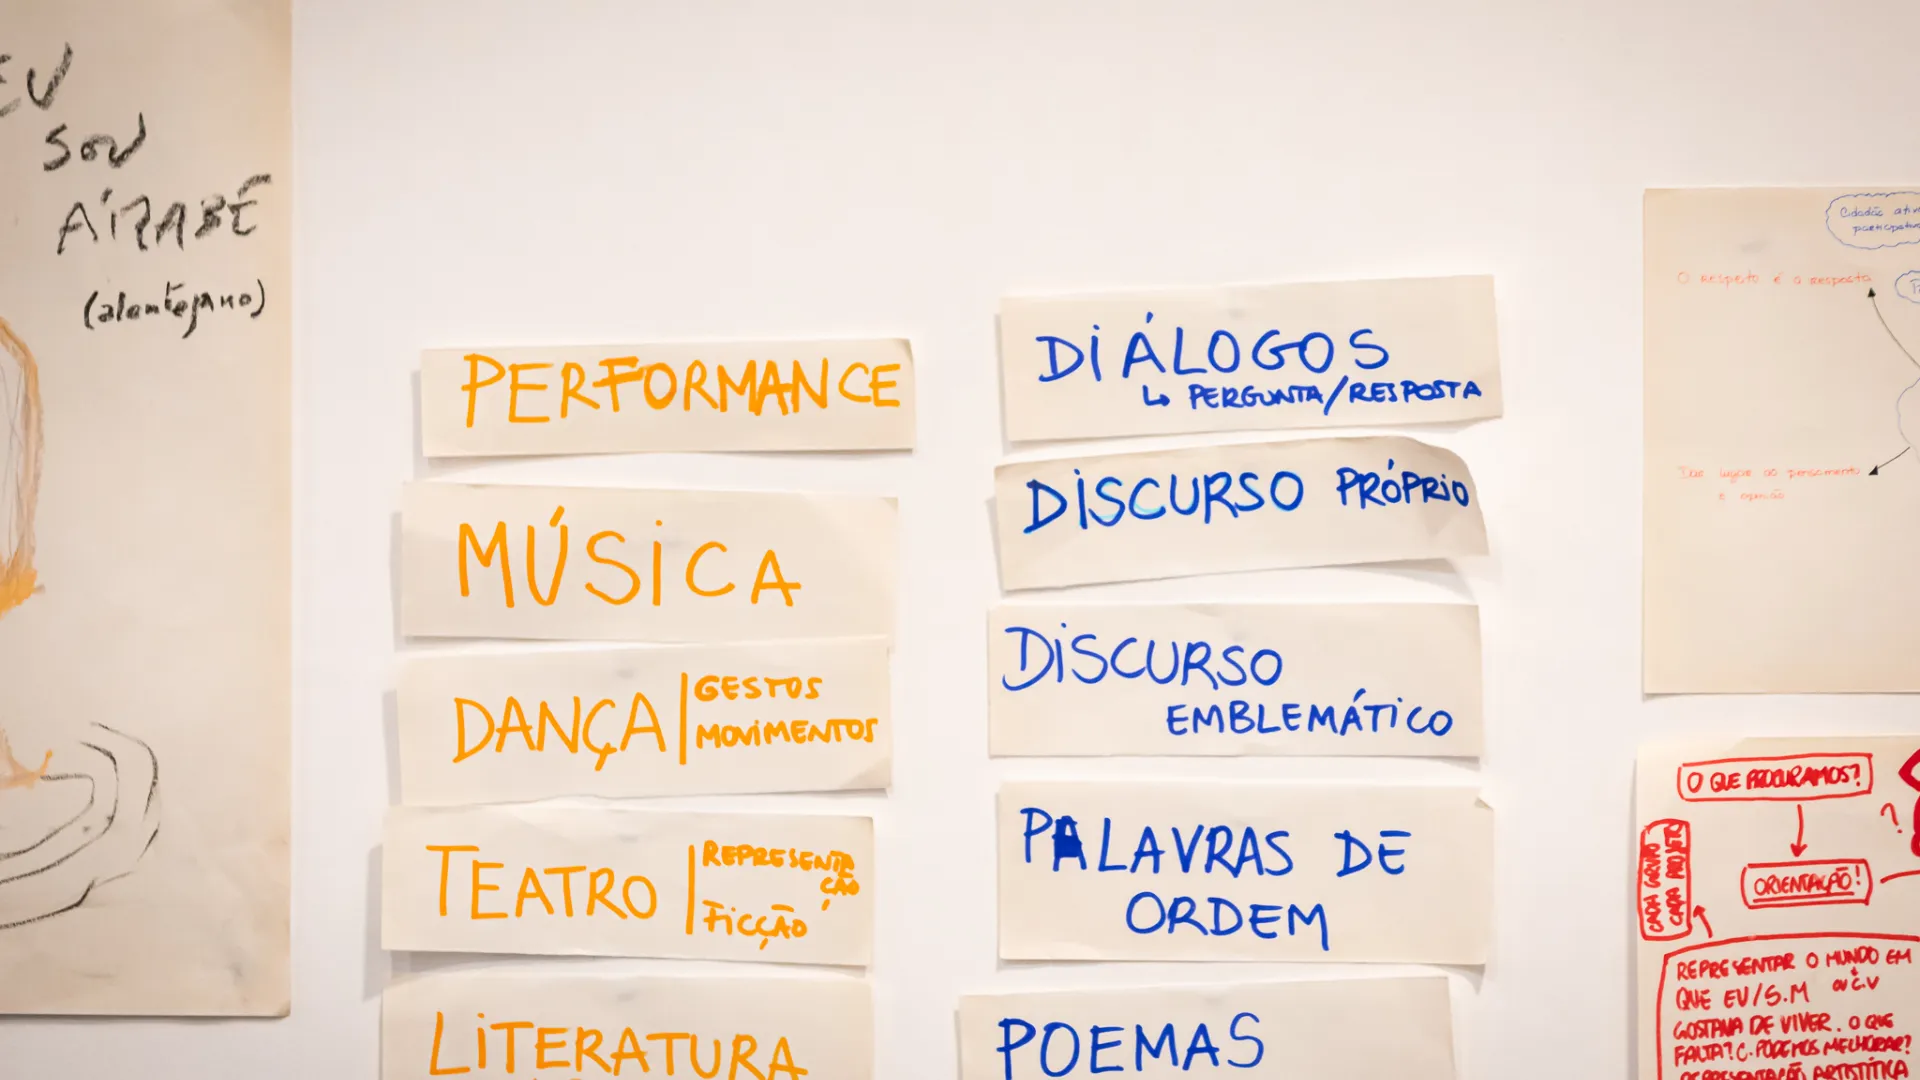 EU
SOU
ÁRABÉ
(alentejano)
PERFORMANCE
MÚSICA
DANÇA | GESTOS
MOVIMENTOS
TEATRO | REPRESENTA
ÇÃO
FICÇÃO
LITERATURA
DIÁLOGOS
↳ PERGUNTA/RESPOSTA
DISCURSO PRÓPRIO
DISCURSO
EMBLEMÁTICO
PALAVRAS DE
ORDEM
POEMAS
Cidadão
O respeito é a resposta
Dar lugar ao pensamento
e opinião
O QUE PROCURAMOS?
?
ORIENTAÇÃO!
CADA GRUPO
CADA PROJETO
REPRESENTAR O MUNDO EM
QUE EU/S.M OU C.V
GOSTAVA DE VIVER. O QUE
FALTA? C. PODEMOS MELHORAR?
REPRESENTAÇÃO ARTISTÍTICA